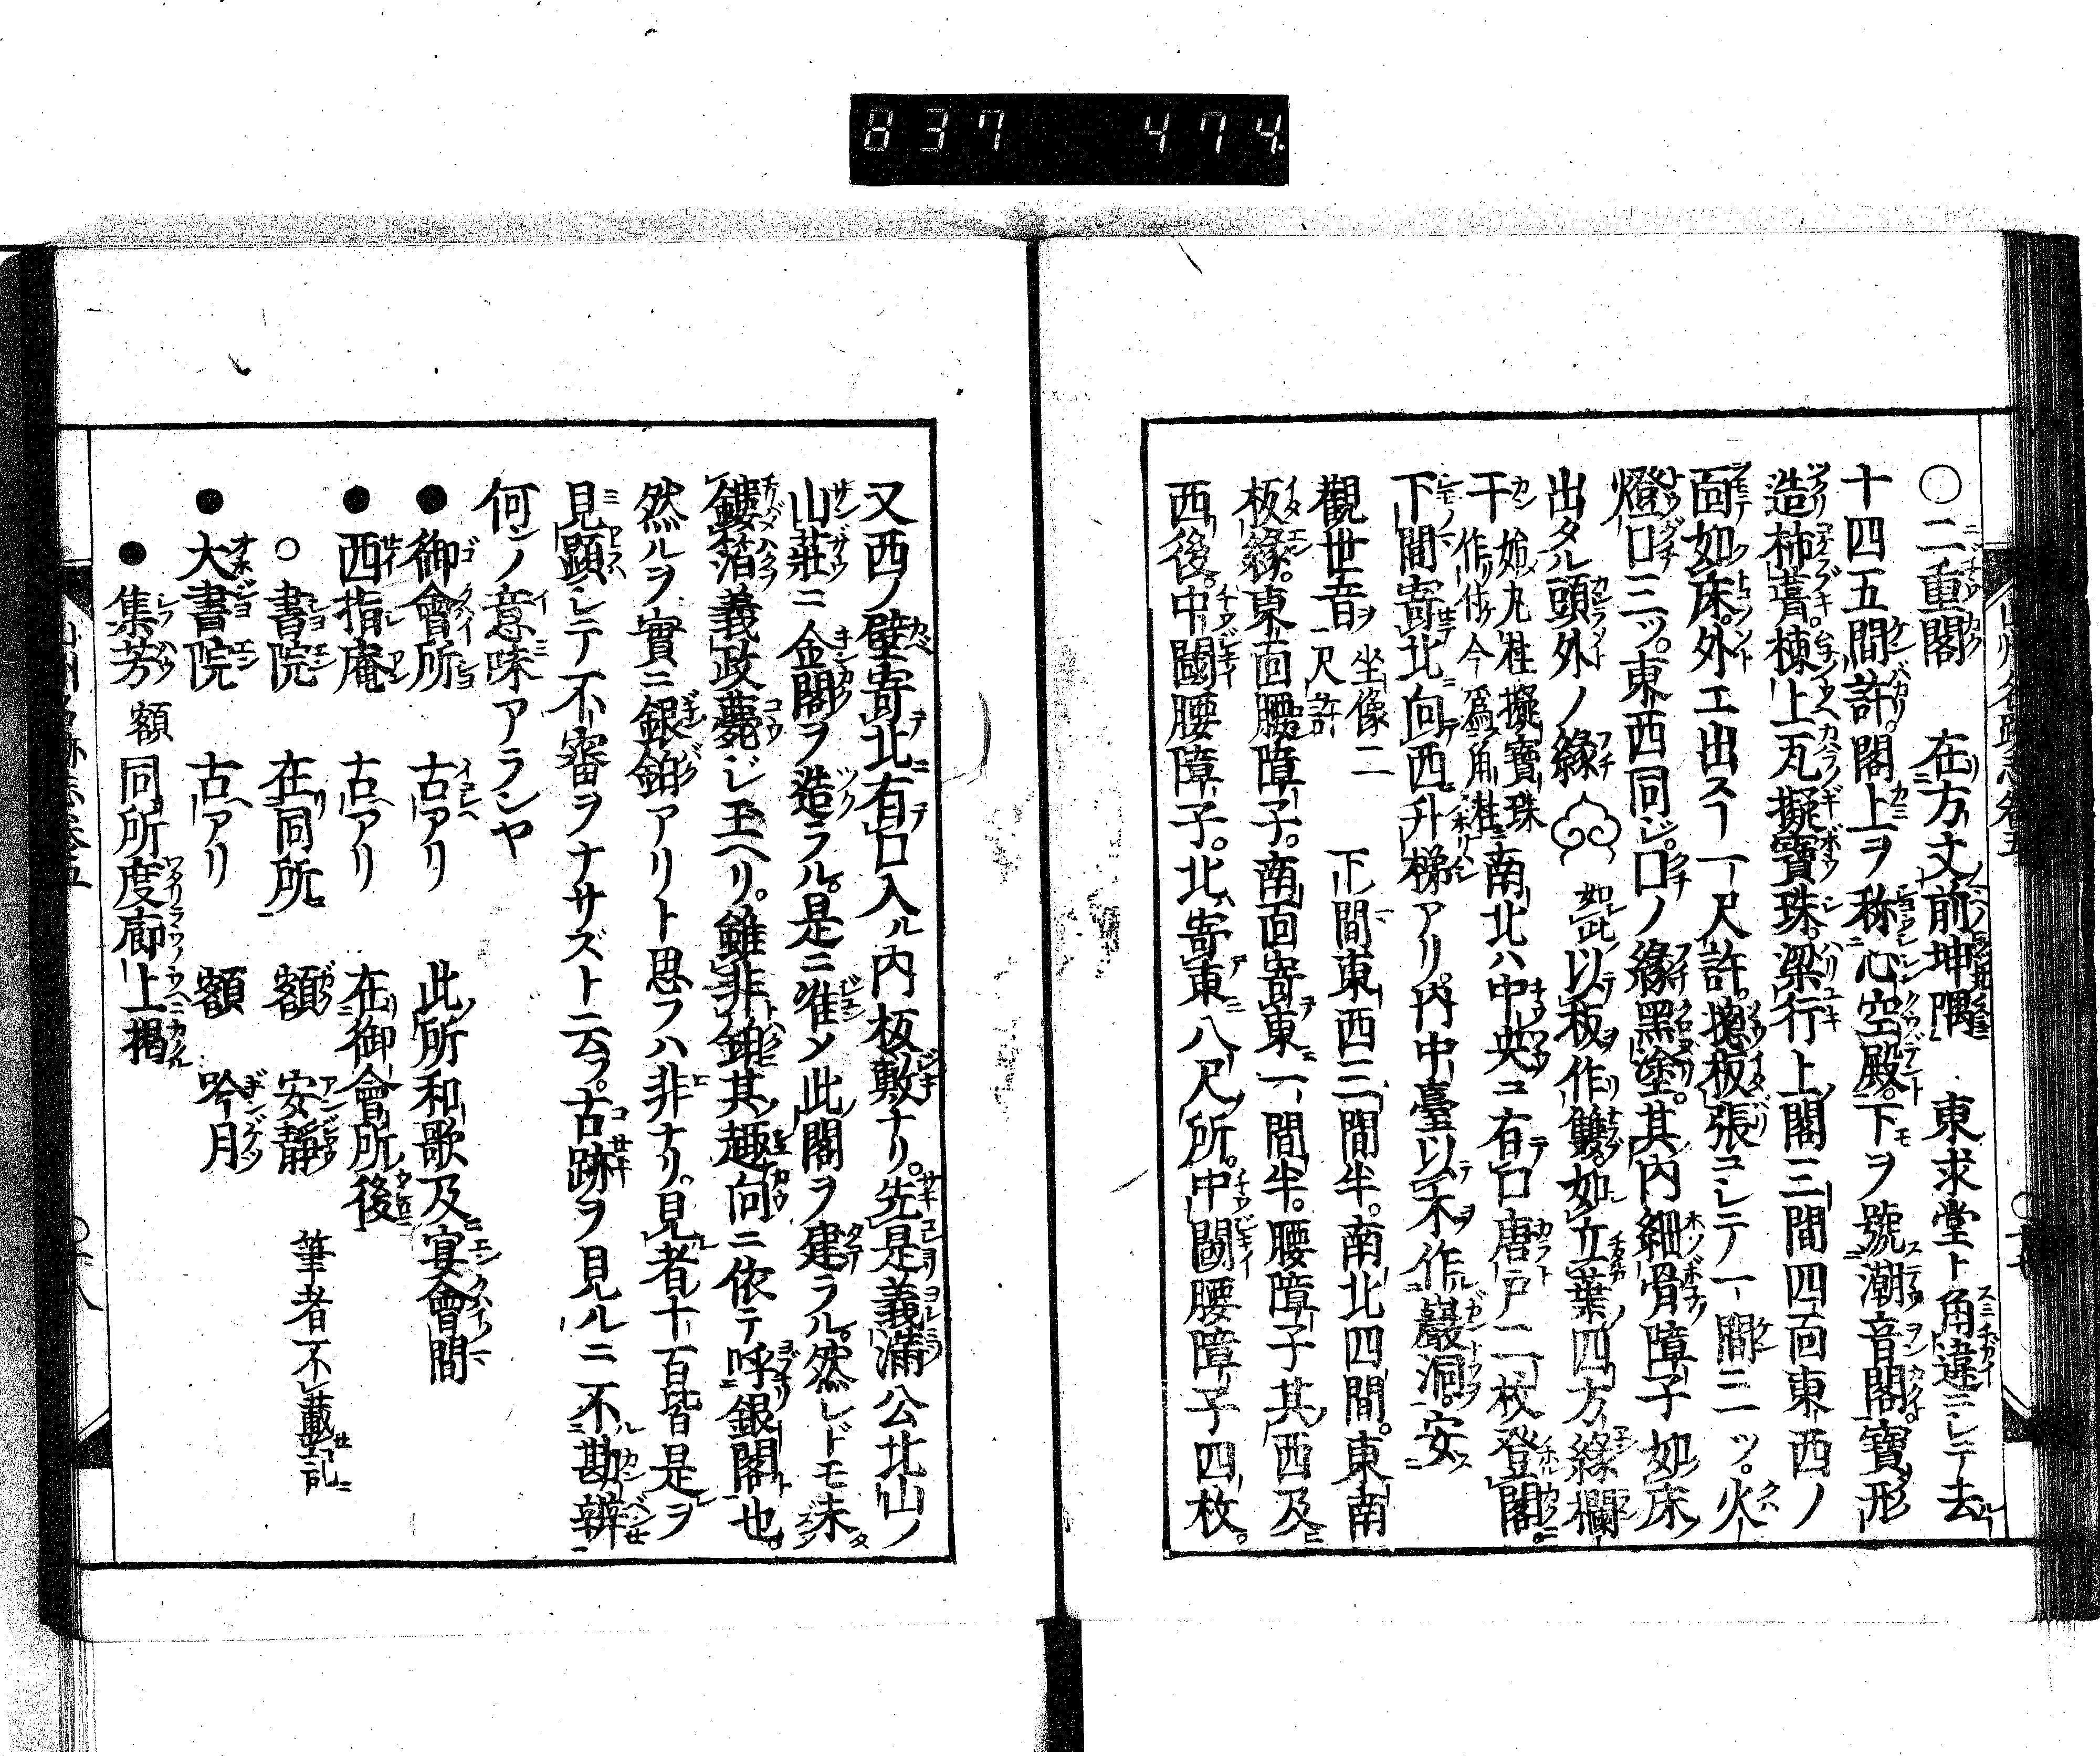 837 474
○二重閣 在方丈前坤隅 東求堂ト角違ニシテ去ルー
十四五間許。閣上ヲ称心空殿。下ヲ號潮音閣。寶形
造柿葺。棟上瓦擬寶珠。梁行上閣三間四面東西ノ
面如床。外エ出スー一尺許。揔板張ニシテ一間三ツ。火
燈口三ツ。東西同ジ。口ノ緣黑塗。其內細骨障子如床
出タル頭外ノ緣 如此 以板作雙。如立葉四方緣欄
干 姉丸柱擬寶珠作付今爲角柱 南北ハ中央ニ有口唐戶二枚登閣
下間寄北向西升梯アリ。內中臺以木作巖洞。安
觀世音 坐像二尺許 下間東西三間半。南北四間。東南
板緣。東面腰障子。南面寄東一間半。腰障子其西及
西後。中閾腰障子。北寄東八尺所。中閾腰障子四枚。
又西ノ壁寄北有口入ル內板敷ナリ。先是義滿公北山ノ
山莊ニ金閣ヲ造ラル。是ニ准メ此閣ヲ建ラル。然レドモ未
鏤箔義政薨ジ玉ヘリ。雖非銀其趣向ニ依テ呼銀閣也。
然ルヲ實ニ銀鉑アリト思フハ非ナリ。見者十一百皆是ヲ
見顯シテ不審ヲナサズト云フ。古跡ヲ見ルニ不勘辨
何ンノ意味アランヤ
●御會所 古アリ 此所和歌及宴會間
●西指庵 古アリ 在御會所後
○書院 在同所 額 安靜 筆者不載記
●大書院 古アリ 額 吟月
●集芳 額同所度廊上揭